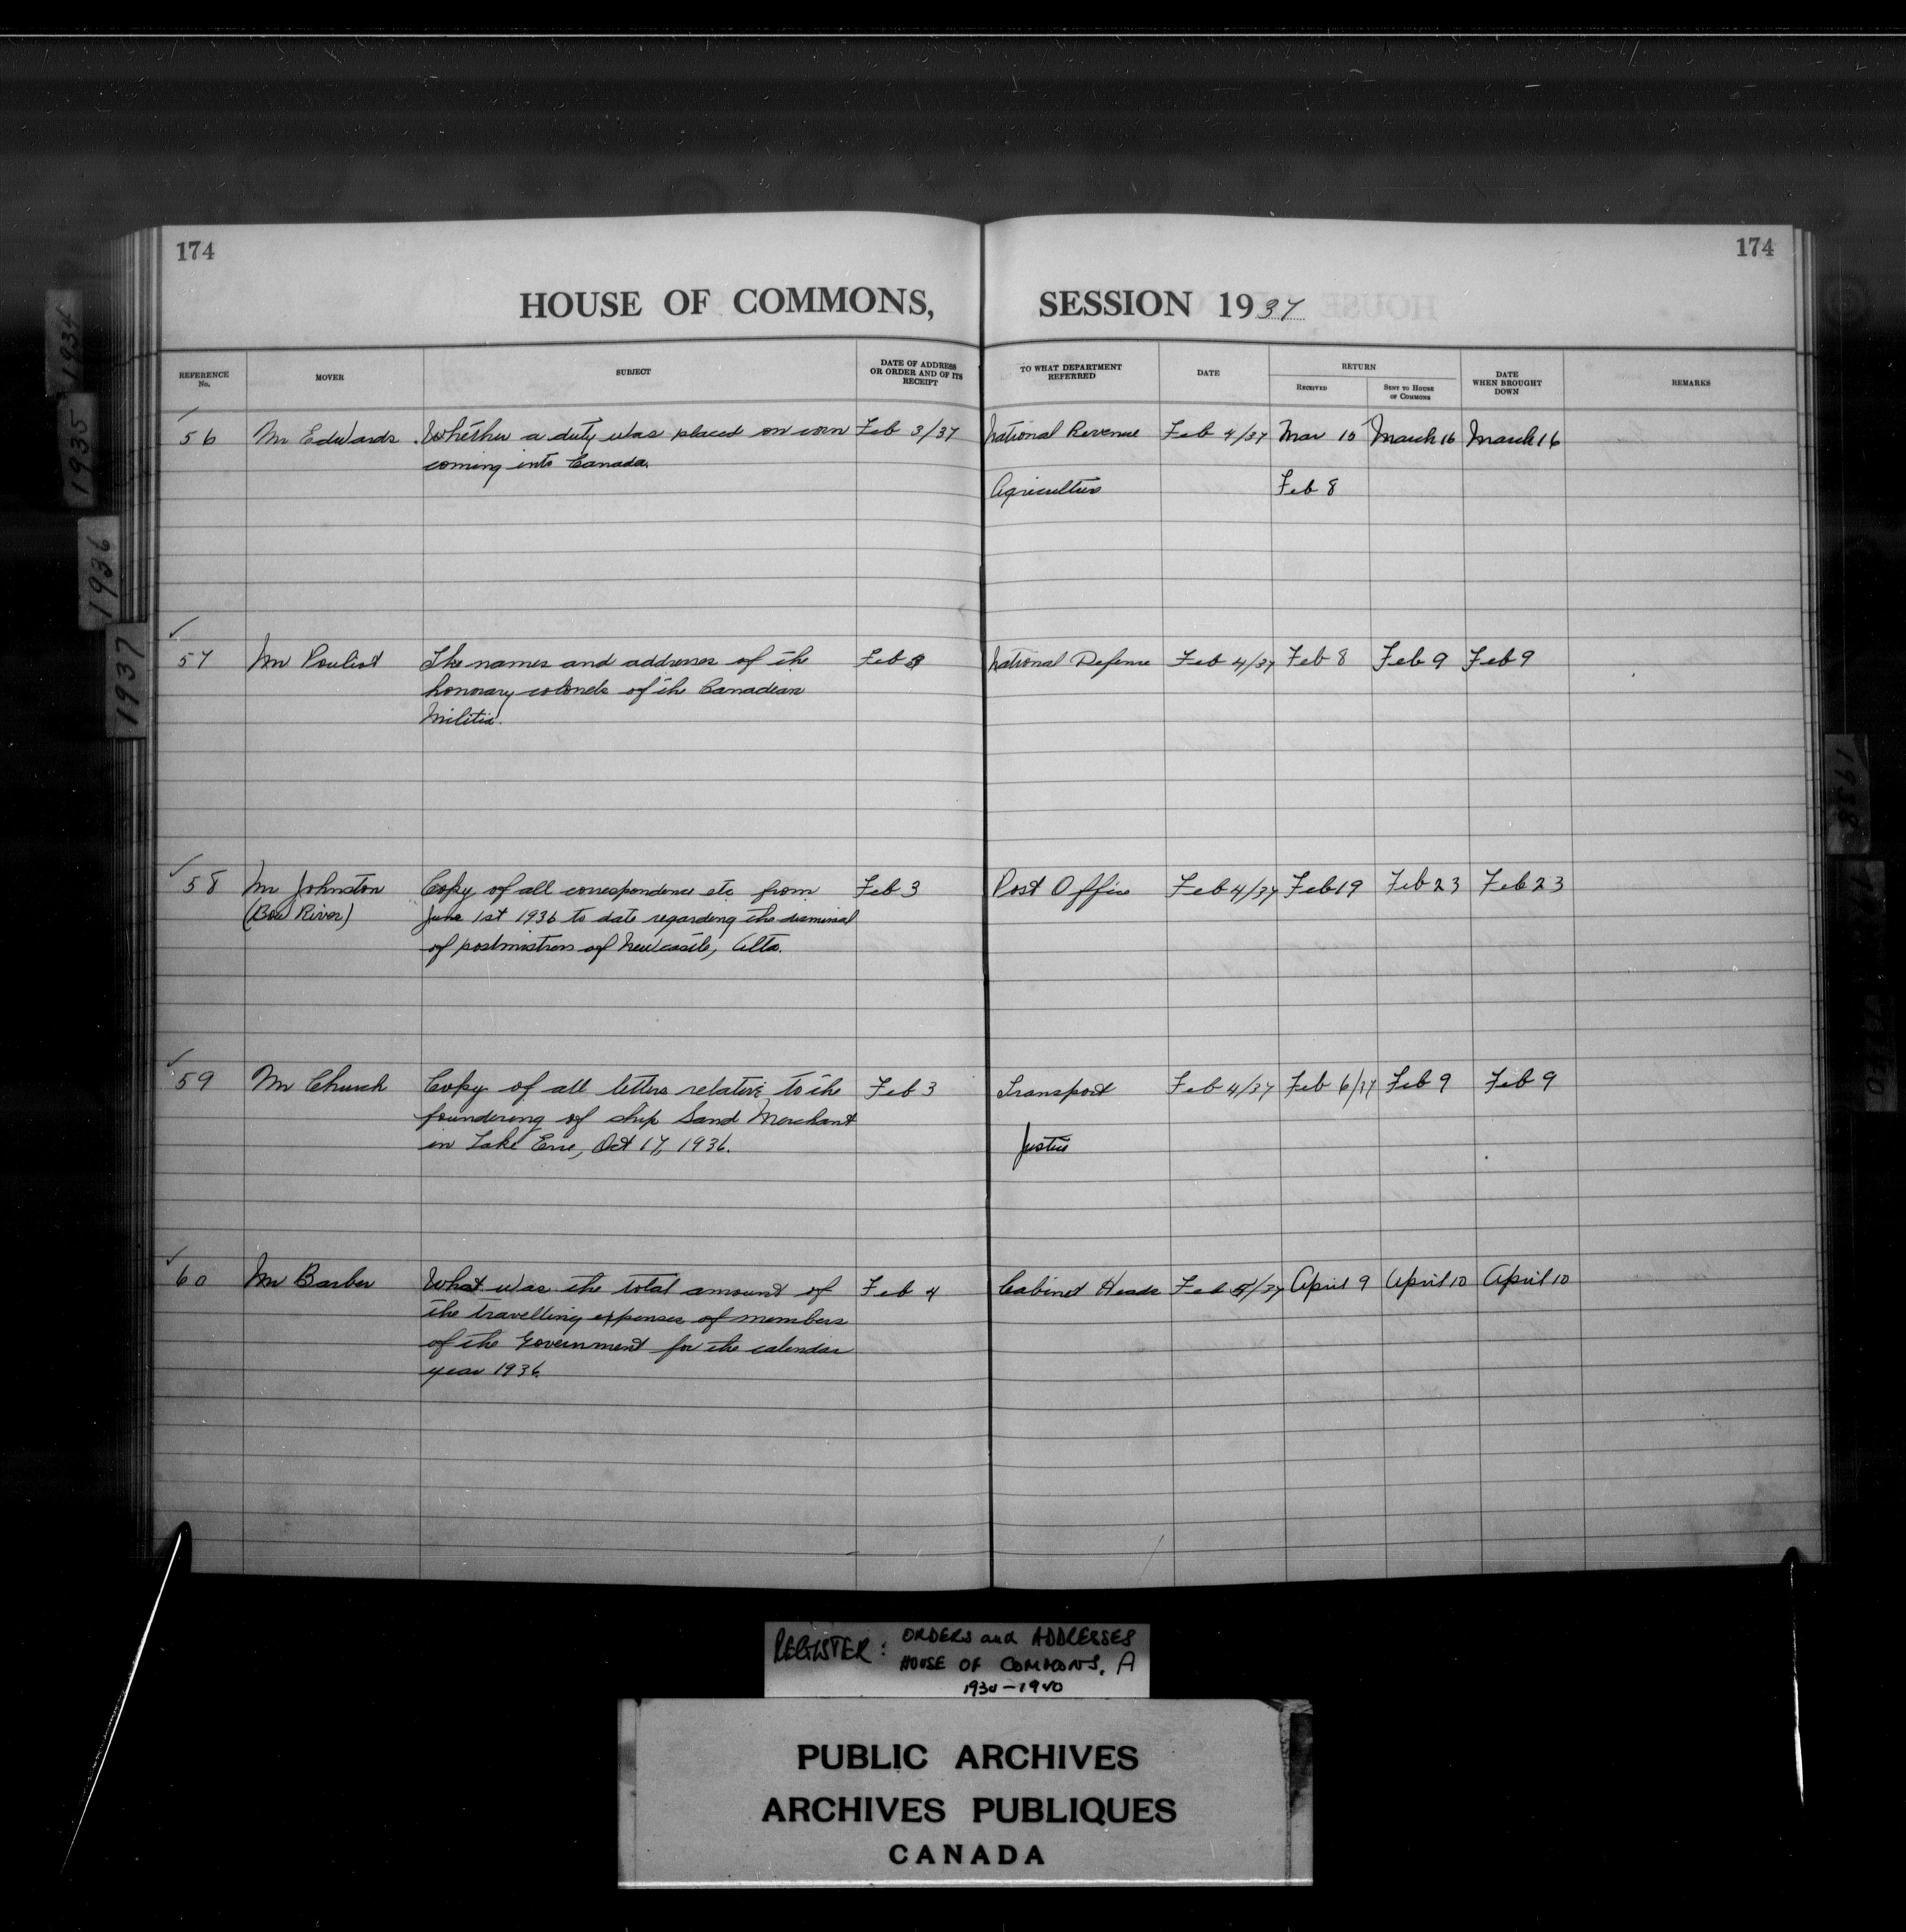 174
174
HOUSE OF COMMONS, SESSION 1937
REFERENCE No. MOVER SUBJECT DATE OF ADDRESS OR ORDER AND OF ITS RECEIPT TO WHAT DEPARTMENT REFERRED DATE RETURN RECEIVED SENT TO HOUSE OF COMMONS DATE WHEN BROUGHT DOWN REMARKS
56 Mr Edwards Whether a duty was placed on corn Feb 3/37 National Revenue Feb 4/37 Mar 15 March 16 March 16
coming into Canada.
Agriculture Feb 8
57 Mr Pouliot The names and addresses of the Feb 3 National Defense Feb 4/37 Feb 8 Feb 9 Feb 9
honorary colonels of the Canadian
Militia.
58 Mr Johnston Copy of all correspondence etc from Feb 3 Post Office Feb 4/37 Feb 19 Feb 23 Feb 23
(Bow River) June 1st 1936 to date regarding the dismissal
of postmistress of Newcastle, Alta.
59 Mr Church Copy of all letters relative to the Feb 3 Transport Feb 4/37 Feb 6/37 Feb 9 Feb 9
foundering of ship Sand Merchant
in Lake Erie, Oct 17, 1936. Justice
60 Mr Barber What was the total amount of Feb 4 Cabinet Heads Feb 5/37 April 9 April 10 April 10
the travelling expenses of members
of the Government for the calendar
year 1936.
1934
1935
1936
1937
1938
REGISTER: ORDERS and ADDRESSES
HOUSE OF COMMONS. A
1934-1940
PUBLIC ARCHIVES
ARCHIVES PUBLIQUES
CANADA